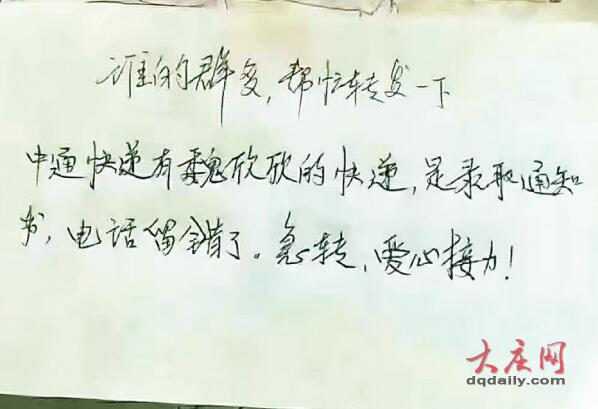 谁的群多,帮忙转发一下
中通快递有魏欣欣的快递,是录取通知
书,电话留错了。急转,爱心接力!
大庆网
dqdaily.com